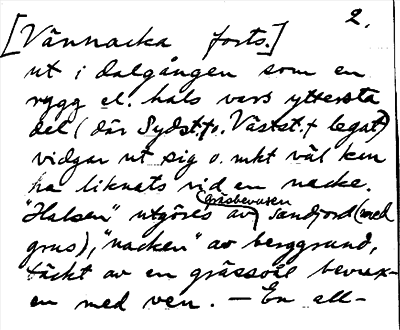 2.
[Vännacka forts.]
ut i dalgången som en
rygg el. hals vars yttersta
del (där Sydst.† o. Västst.† legat)
vidgar ut sig o. mkt väl kun
ha liknats vid en nacke.
"Halsen" utgöres av gräsbevuxen sandjord (med
grus), "nacken" av berggrund,
täckt av en gråssvål bevux-
en med ven. – En all-